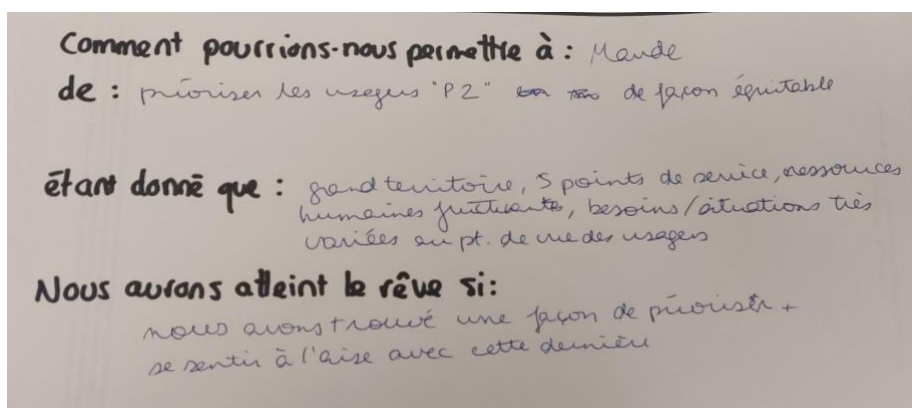 Comment pourrions-nous permettre à : Maude
de : prioriser les usagers "P2" de façon équitable
étant donné que : grand territoire, 5 points de service, ressources
humaines fluctuantes, besoins/situations très
variées au pt. de vue des usagers
Nous aurons atteint le rêve si:
nous avons trouvé une façon de prioriser +
se sentir à l'aise avec cette dernière